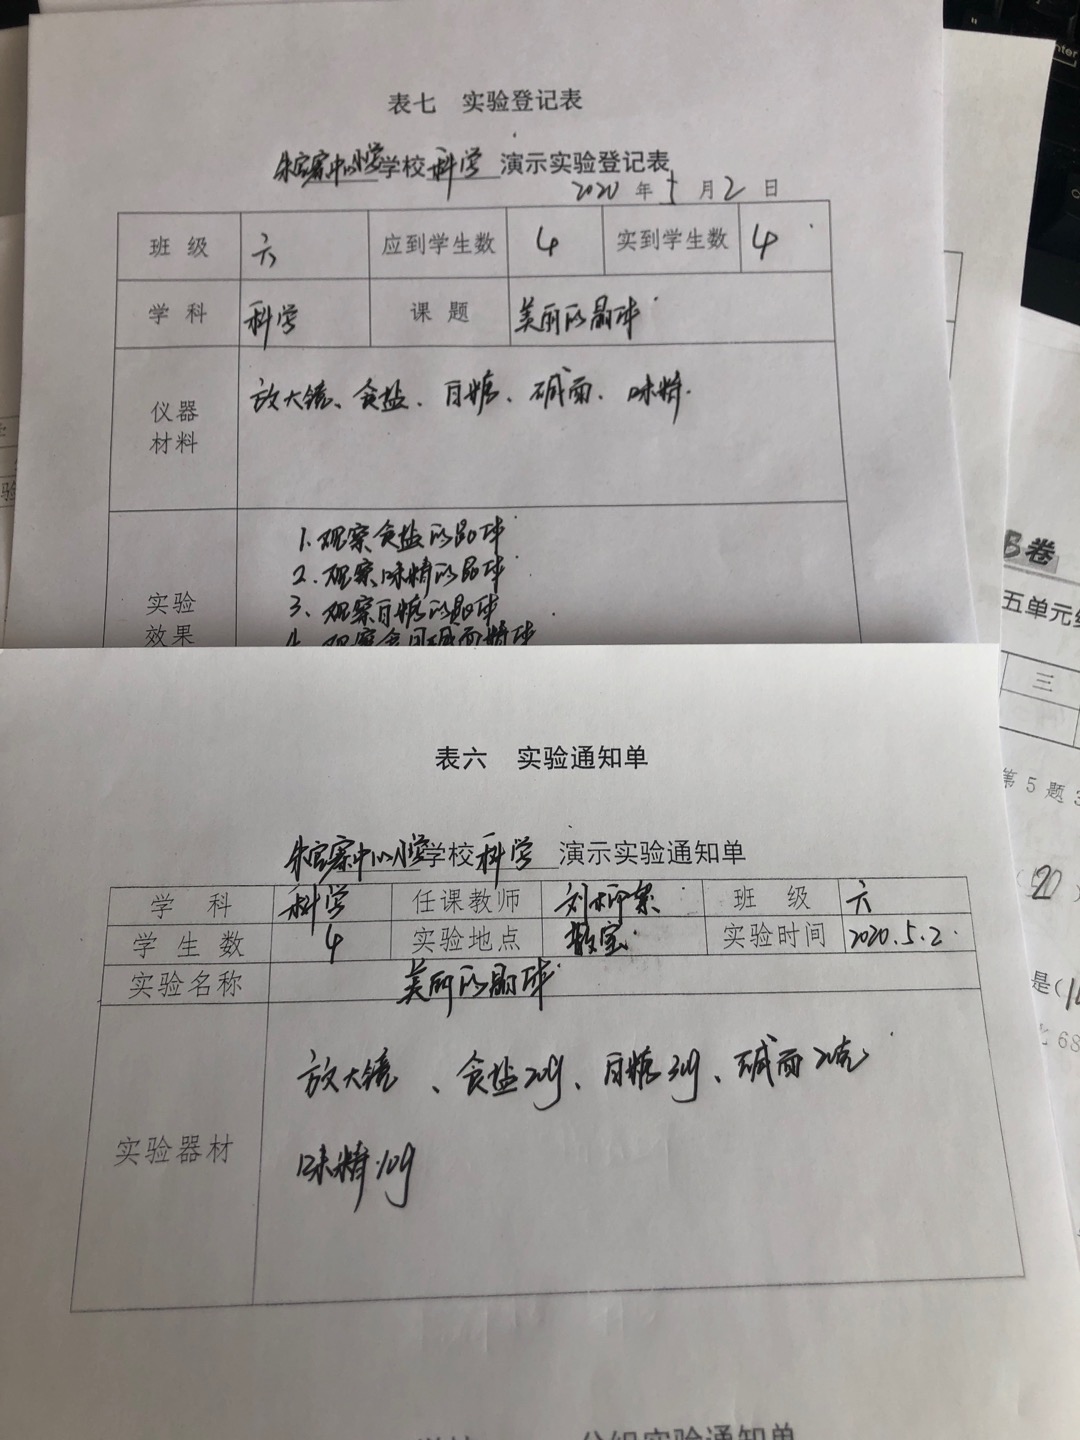 表七 实验登记表
朱官寨中心小学学校科学 演示实验登记表
2020 年 5 月 2 日
班 级 六 应到学生数 4 实到学生数 4
学 科 科学 课 题 美丽的晶体
仪器材料 放大镜、食盐、白糖、碱面、味精
实验效果
1、观察食盐的晶体
2、观察味精的晶体
3、观察白糖的晶体
表六 实验通知单
朱官寨中心小学学校科学 演示实验通知单
学 科 科学 任课教师 刘 班 级 六
学生数 4 实验地点 教室 实验时间 2020.5.2.
实验名称 美丽的晶体
实验器材
放大镜、食盐20g、白糖30g、碱面20克
味精10g
分组实验通知单
B卷
五单元
三
第 5 题
(20)
是(
68
enter